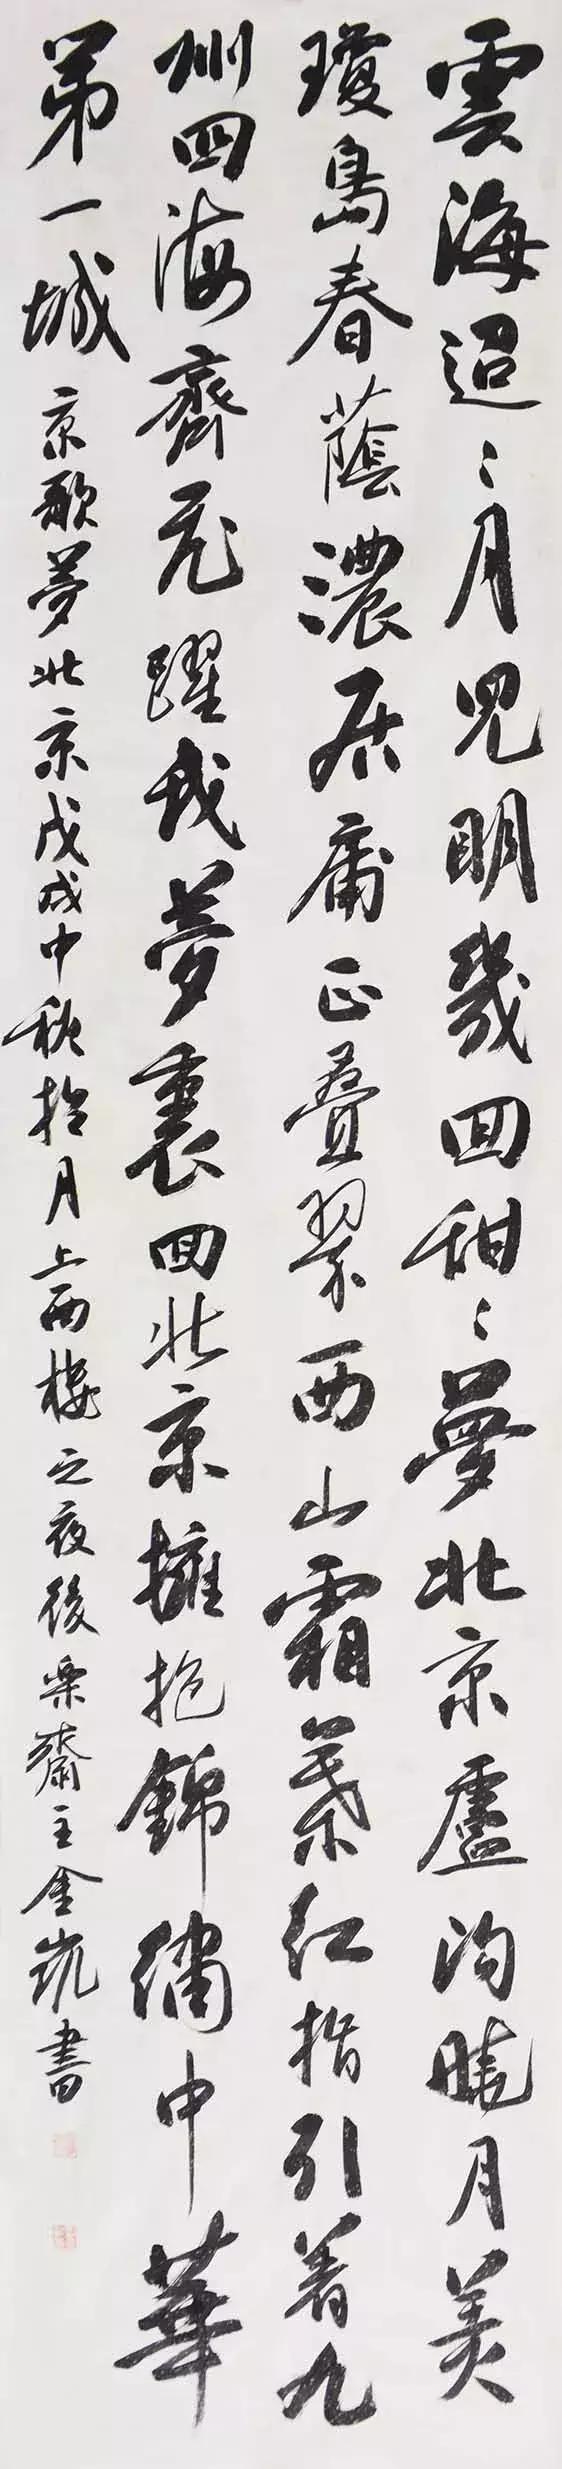 雲海迢〻月児明幾回甜〻夢北京盧沟曉月美
瓊島春蔭濃居庸正疊翠西山霜葉紅指引着九
州四海齊飛躍我夢裏回北京擁抱錦繡中華
第一城
京歌夢北京戊戌中秋拾月上西樓之夜後樂齋主金凱書